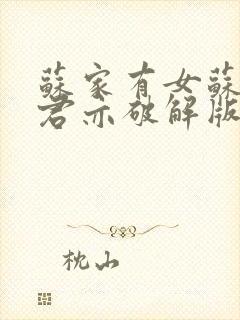 蘇家有女蘇
君亦破解版
枕山